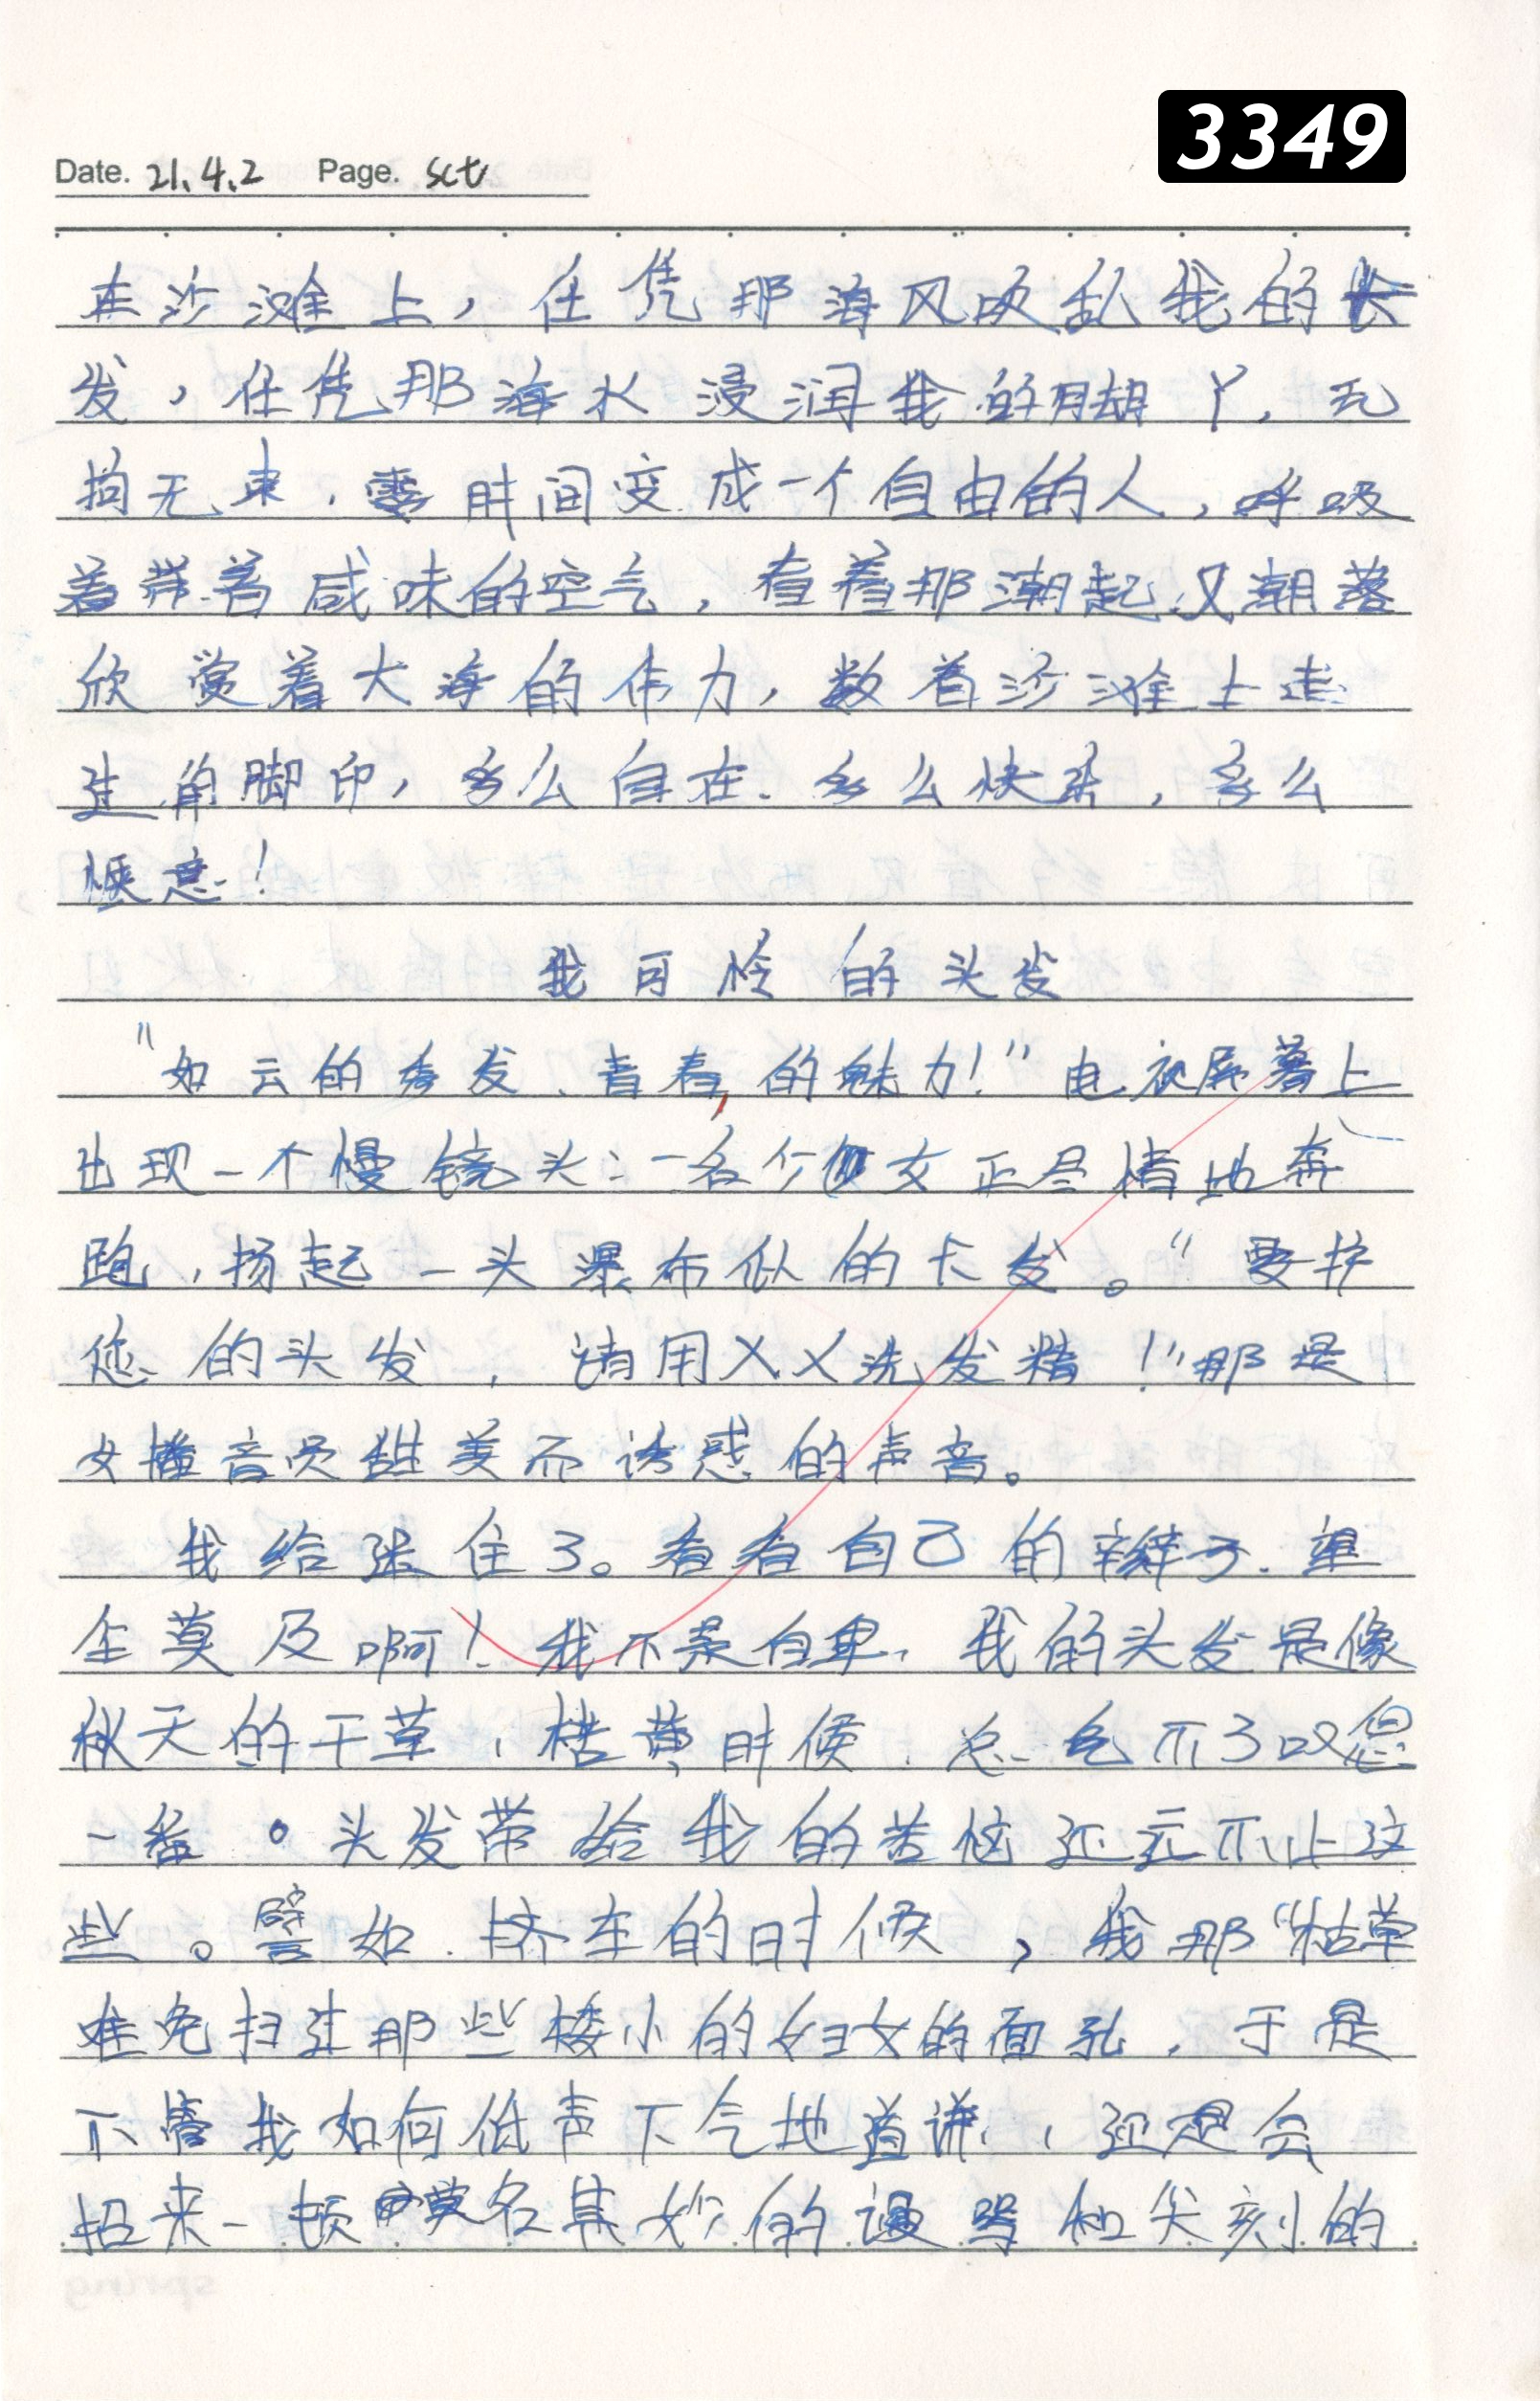 3349
Date. 21.4.2 Page. sct
在沙滩上，任凭那海风吹乱我的长
发，任凭那海水浸润我的脚丫，无
拘无束，霎时间变成一个自由的人，呼吸
着带着咸味的空气，看着那潮起又潮落
欣赏着大海的伟力，数着沙滩上走
过的脚印，多么自在、多么快乐，多么
惬意！
我可怜的头发
“如云的秀发、青春的魅力！”电视屏幕上
出现一个慢镜头：一名少女正尽情地奔
跑，扬起一头瀑布似的长发。“要护
您的头发，请用乂乂洗发精！”那是
女播音员甜美而诱惑的声音。
我给迷住了。看看自己的辫子，望
尘莫及啊！我不是自卑，我的头发是像
秋天的干草，枯黄时候，总免不了叹息
一番。头发带给我的苦恼还远不止这
些。譬如挤车的时候，我那“枯草
难免扫过那些矮小的妇女的面孔，于是
不管我如何低声下气地道谦，还是会
招来一顿莫名其妙的谩骂和尖刻的